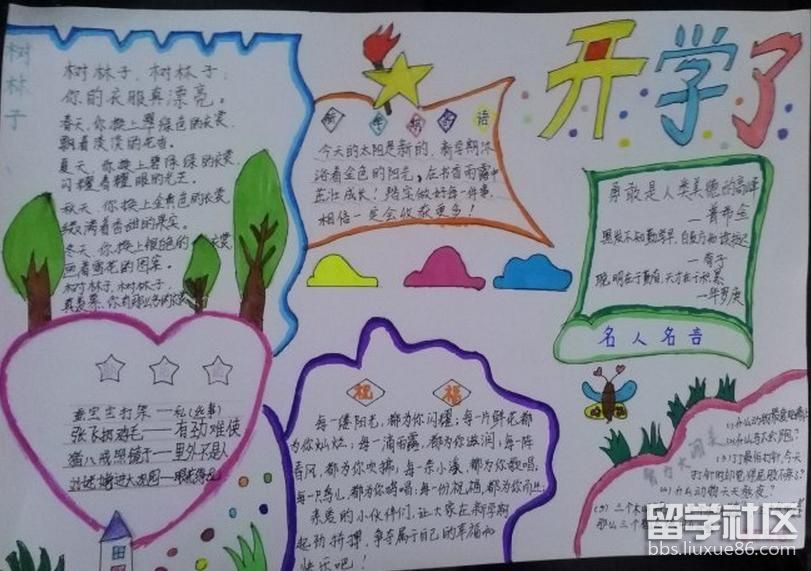 开学了
树林子
树林子，树林子，
你的衣服真漂亮。
春天，你换上翠绿色的衣裳，
飘着淡淡的花香。
夏天，你换上碧绿绿的衣裳，
闪耀着耀眼的光芒。
秋天，你换上金黄色的衣裳，
缀满着香甜的果实。
冬天，你换上银色的衣裳，
画着雪花的图案。
树林子，树林子，
新学期寄语
今天的太阳是新的，新学期沐
浴着金色的阳光，在书香雨露中
茁壮成长！踏实做好每一件事，
相信一定会收获更多！
勇敢是人类美德的高峰
—普希金
黑发不知勤学早，白首方悔读书迟
聪明在于勤奋，天才在于积累
—华罗庚
名人名言
蚕宝宝打架—私(丝)事
张飞扔鸡毛—有劲难使
猪八戒照镜子—里外不是人
祝福
每一缕阳光，都为你闪耀；每一片鲜花都
为你灿烂；每一滴雨露，都为你滋润；每一阵
春风，都为你吹拂；每一条小溪，都为你歌唱；
每一只鸟儿，都为你鸣唱；每一份祝福，都为你而
亲爱的小伙伴们，让大家在新学期
起劲拼搏，争夺属于自己的幸福和
快乐吧！
智力大闯关
打针时却笔
(4)什么动物天天熬夜？
(5)三个
那么三个
留学社区
bbs.liuxue86.com